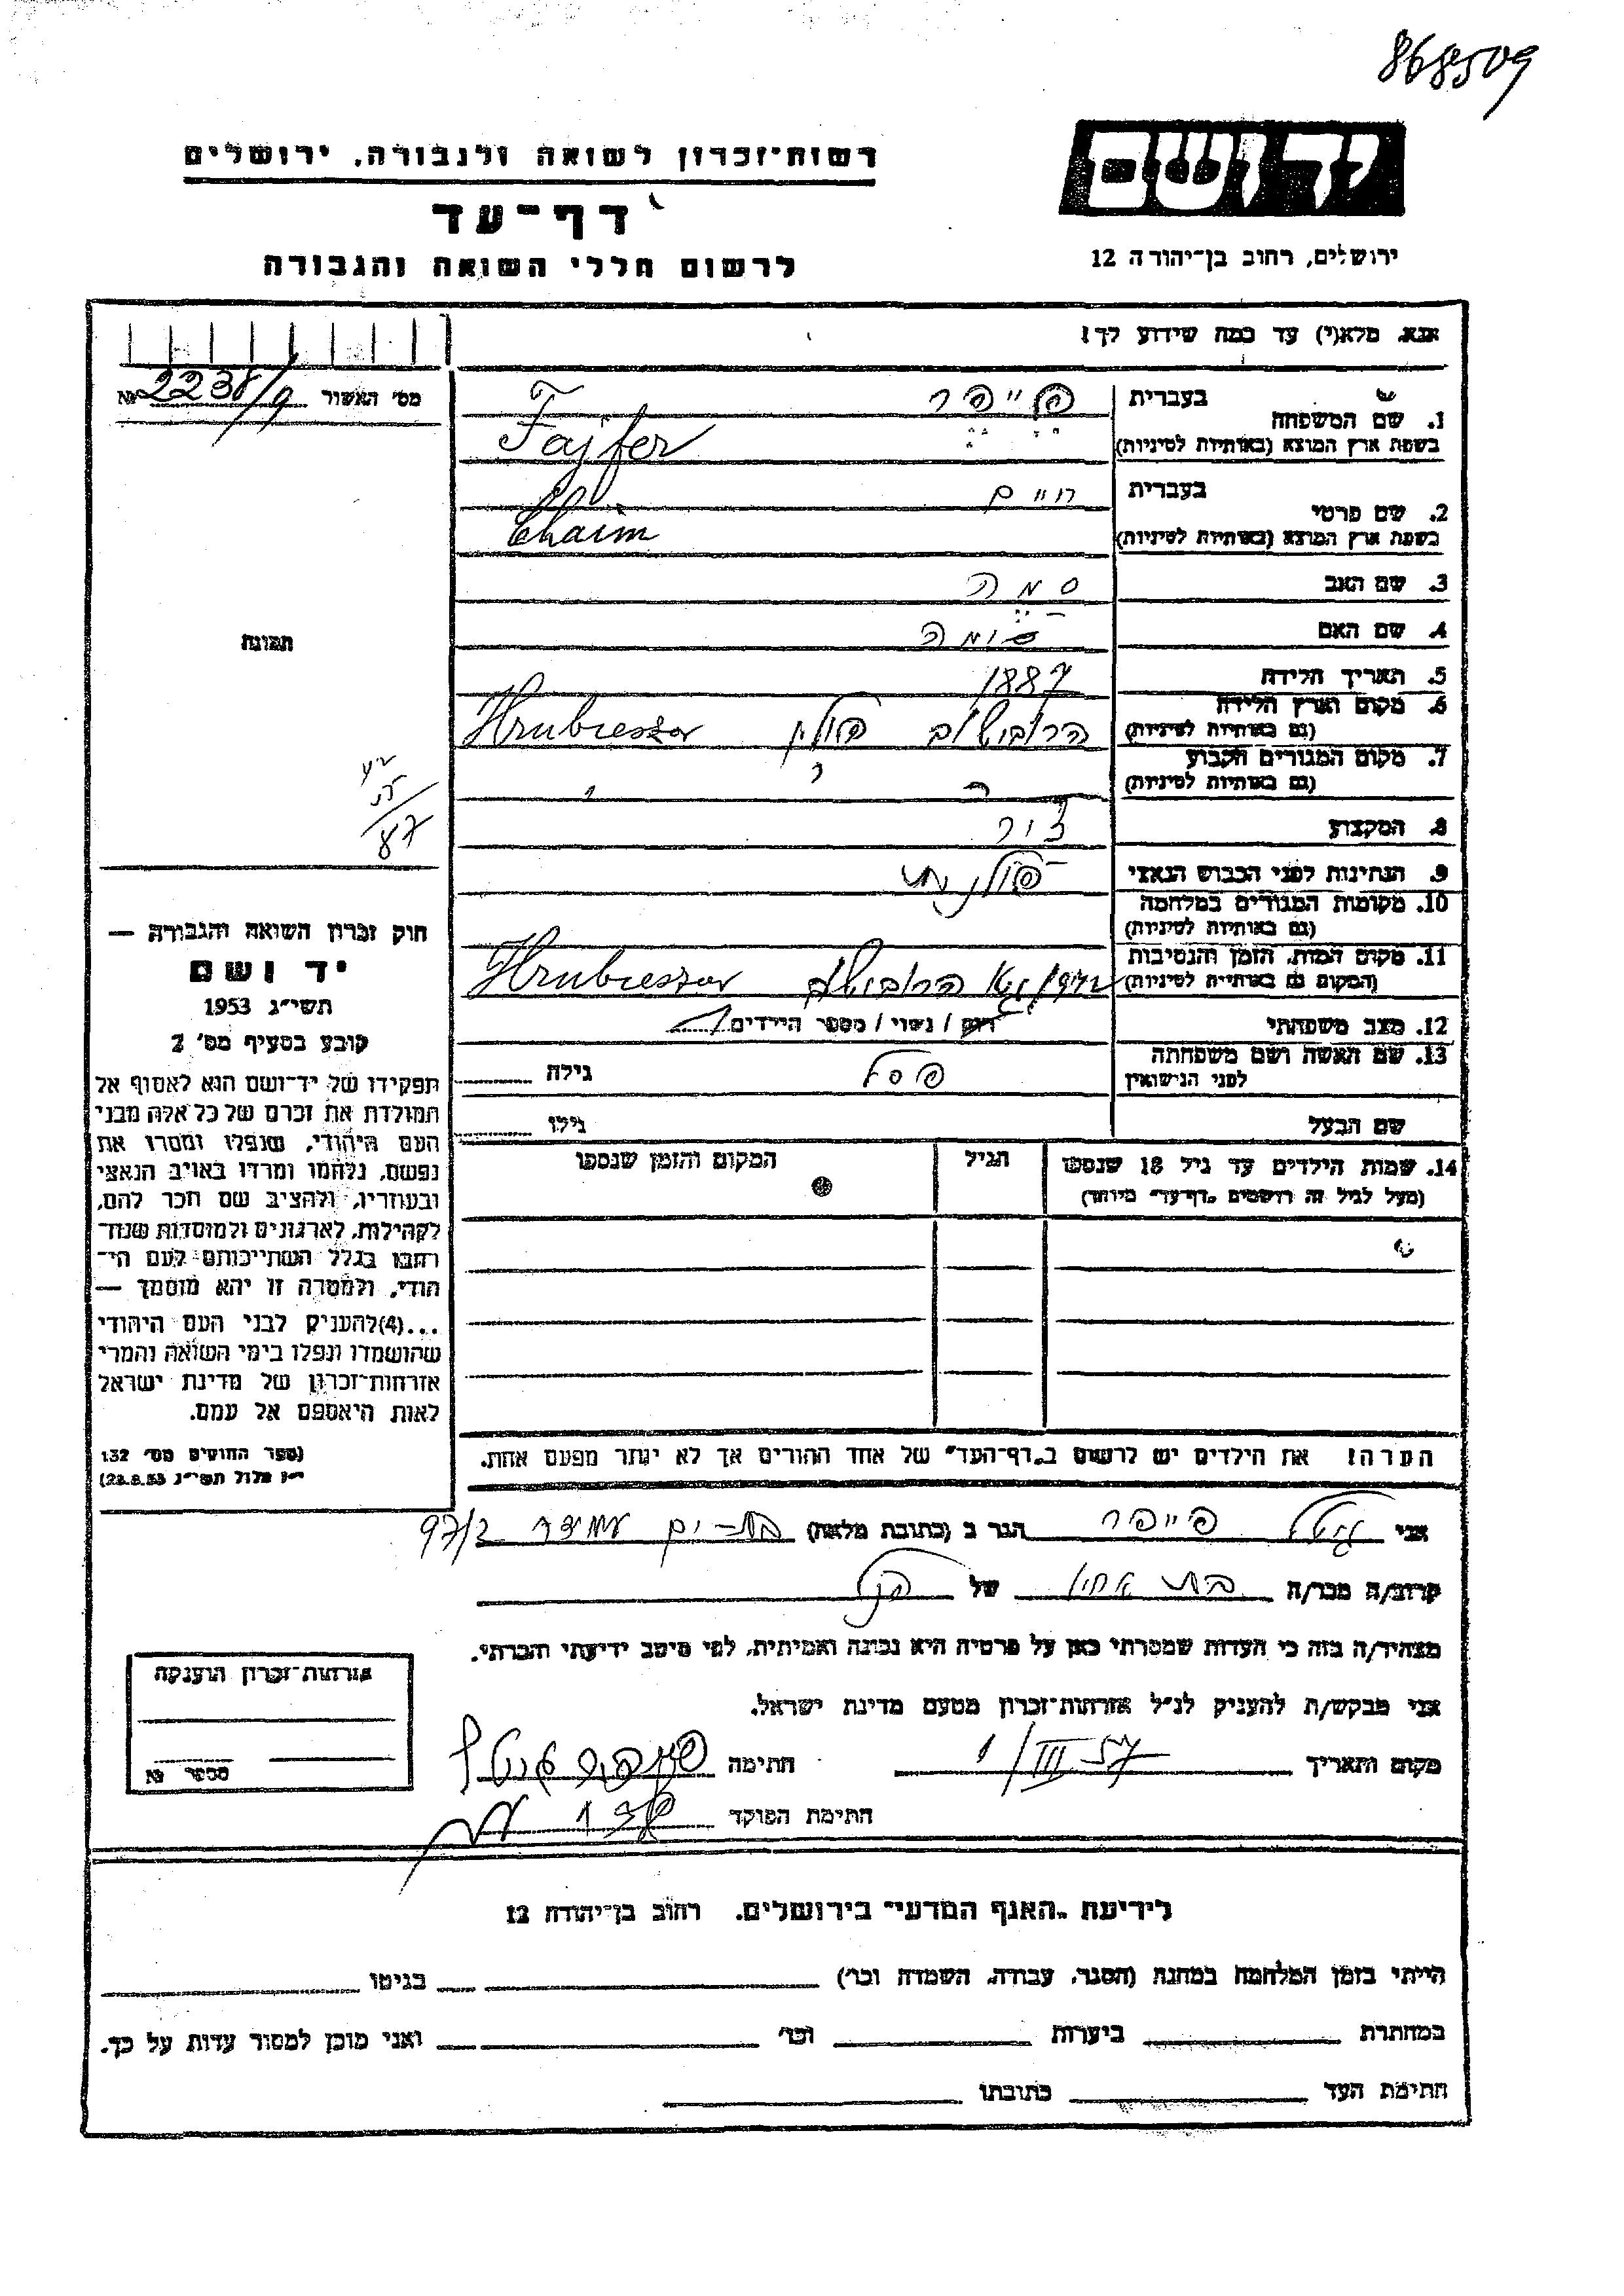 868509
יד ושם
רשות-זכרון לשואה ולגבורה, ירושלים
דף-עד
לרשום חללי השואה והגבורה
ירושלים, רחוב בן-יהודה 12
אנא, מלא(י) עד כמה שידוע לך!
מס' האשור 2238/9 №
בעברית פייפר
1. שם המשפחה
בשפת ארץ המוצא (באותיות לטיניות) Fajfer
בעברית חיים
2. שם פרטי
בשפת ארץ המוצא (באותיות לטיניות) Chaim
3. שם האב
4. שם האם
תמונה
5. תאריך הלידה 1887
6. מקום וארץ הלידה
(גם באותיות לטיניות) הרובישוב פולין Hrubieszow
7. מקום המגורים הקבוע
(גם באותיות לטיניות)
8. המקצוע
9. הנתינות לפני הכבוש הנאצי פולנית
10. מקומות המגורים במלחמה
(גם באותיות לטיניות)
11. מקום המות, הזמן והנסיבות
(המקום גם באותיות לטיניות) הרובישוב Hrubieszow
12. מצב משפחתי רווק / נשוי / מספר הילדים
13. שם האשה ושם משפחתה
לפני הנישואין פסל גילה
שם הבעל גילו
14. שמות הילדים עד גיל 18 שנספו
(מעל לגיל זה רושמים „דף-עד" מיוחד)
הגיל
המקום והזמן שנספו
חוק זכרון השואה והגבורה —
יד ושם
תשי"ג 1953
קובע בסעיף מס' 2
תפקידו של יד-ושם הוא לאסוף אל
המולדת את זכרם של כל אלה מבני
העם היהודי, שנפלו ומסרו את
נפשם, נלחמו ומרדו באויב הנאצי
ובעוזריו, ולהציב שם וזכר להם,
לקהילות, לארגונים ולמוסדות שנח-
רבו בגלל השתייכותם לעם הי-
הודי, ולמטרה זו יהא מוסמך —
...(4) להעניק לבני העם היהודי
שהושמדו ונפלו בימי השואה והמרי
אזרחות-זכרון של מדינת ישראל
לאות היאספם אל עמם.
(ספר החוקים מס' 132
י"ז אלול תשי"ג 28.8.53)
הערה! את הילדים יש לרשום ב„דף-העד" של אחד ההורים אך לא יותר מפעם אחת.
אני גיטל פייפר הגר ב (כתובת מלאה) בת-ים עמידר 97/2
קרוב/ה מכר/ה בת אחיו של הנ"ל
מצהיר/ה בזה כי העדות שמסרתי כאן על פרטיה היא נכונה ואמיתית, לפי מיטב ידיעתי והכרתי.
אני מבקש/ת להעניק לנ"ל אזרחות-זכרון מטעם מדינת ישראל.
מקום ותאריך 1/III 57 חתימה
חתימת הפוקד
אזרחות-זכרון הוענקה
מספר №
לידיעת „האגף המדעי" בירושלים. רחוב בן-יהודה 12
הייתי בזמן המלחמה במחנה (הסגר, עבודה, השמדה וכו') בגיטו
במחתרת ביערות וכו' ואני מוכן למסור עדות על כך.
חתימת העד כתובתו